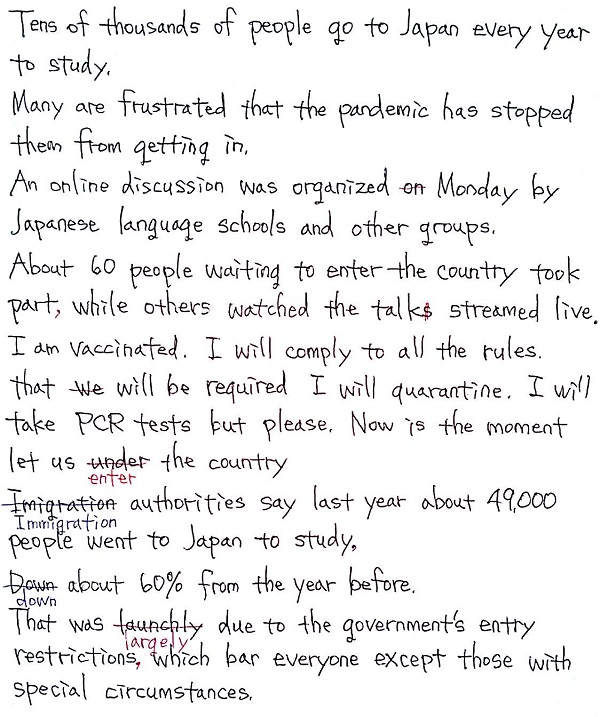 Tens of thousands of people go to Japan every year
to study.
Many are frustrated that the pandemic has stopped
them from getting in.
An online discussion was organized on Monday by
Japanese language schools and other groups.
About 60 people waiting to enter the country took
part, while others watched the talks streamed live.
I am vaccinated. I will comply to all the rules.
that we will be required I will quarantine. I will
take PCR tests but please. Now is the moment
let us under the country
enter
Imigration authorities say last year about 49,000
Immigration
people went to Japan to study,
Down about 60% from the year before.
down
That was launchly due to the government's entry
largely
restrictions, which bar everyone except those with
special circumstances.